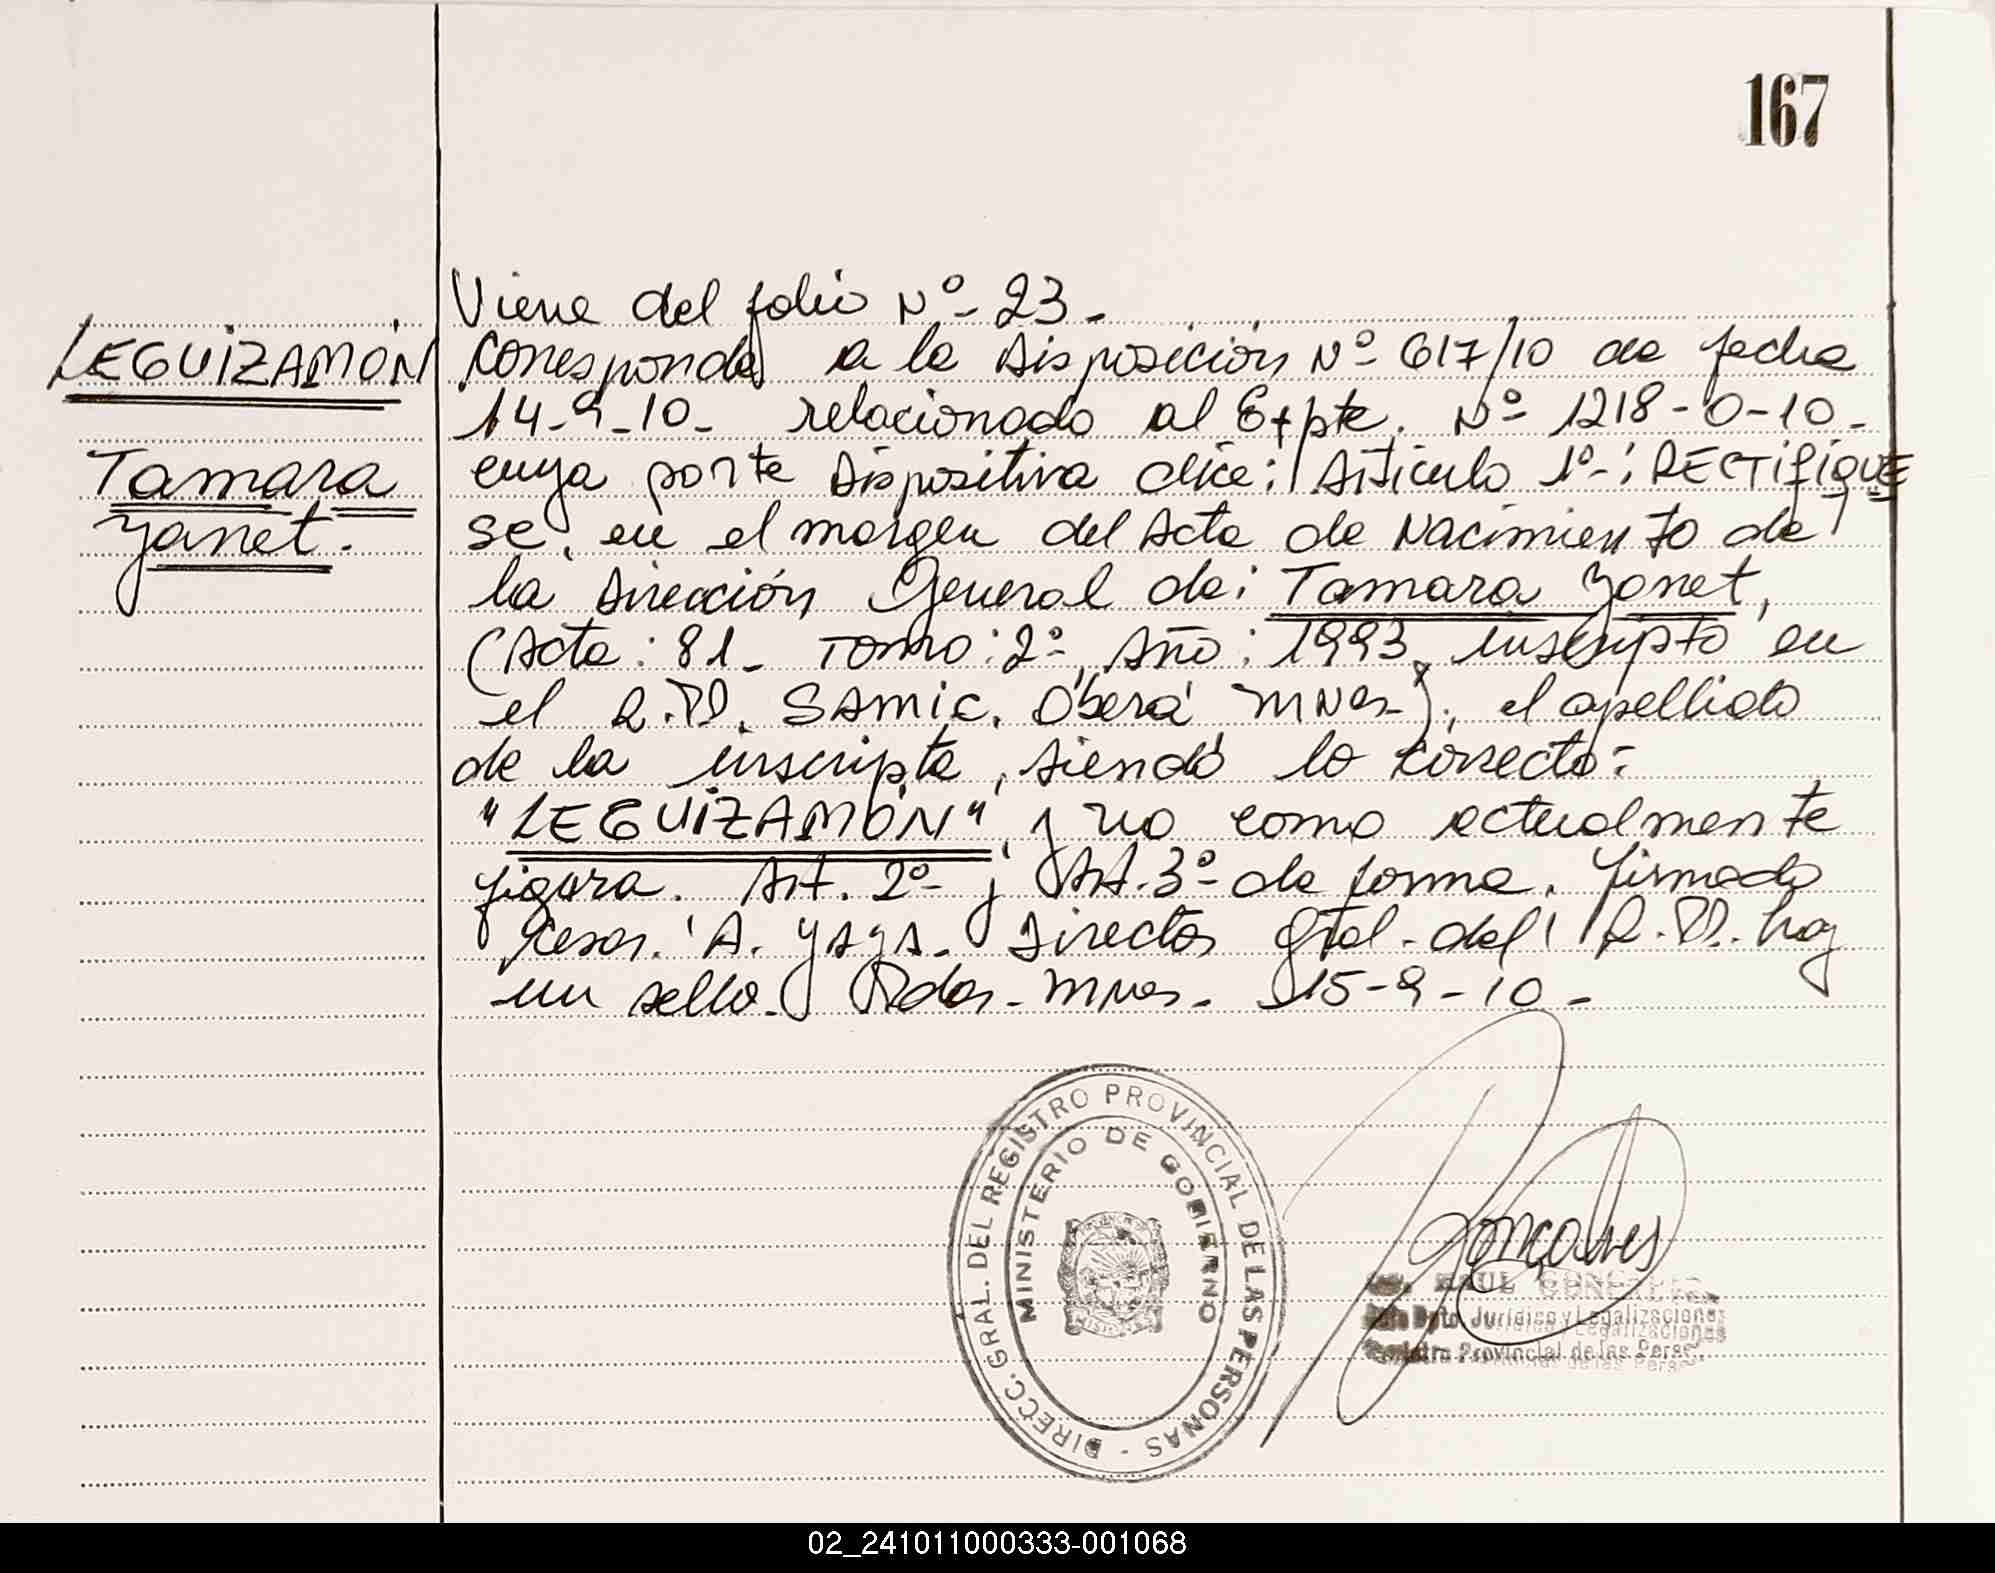 167
Viene del folio Nº- 23-
LEGUIZAMÓN
Corresponde a la Disposición Nº- 617/10 de fecha
14-9-10- relacionado al Expte. Nº- 1218-0-10-
Tamara
cuya parte Dispositiva dice: Artículo 1º-: RECTIFIQUE
Yanet.
se, en el margen del Acta de Nacimiento de
la Dirección General de: Tamara Yanet,
(Acta: 81- Tomo: 2º, Año: 1993, inscripto en
el R.P. SAMIC. Oberá Mnes-), el apellido
de la inscripta, siendo lo correcto:
"LEGUIZAMÓN", y no como actualmente
figura. Art. 2º- y Art. 3º- de forma. Firmado
Cesar. A. Director Gral. del R.P. hay
un sello. Pdas- Mnes- 15-9-10-
DIRECC. GRAL. DEL REGISTRO PROVINCIAL DE LAS PERSONAS -
MINISTERIO DE GOBIERNO
Gonçalves
RAUL
Dpto. Jurídico y Legalizaciones
Provincial de las Pers
02_241011000333-001068